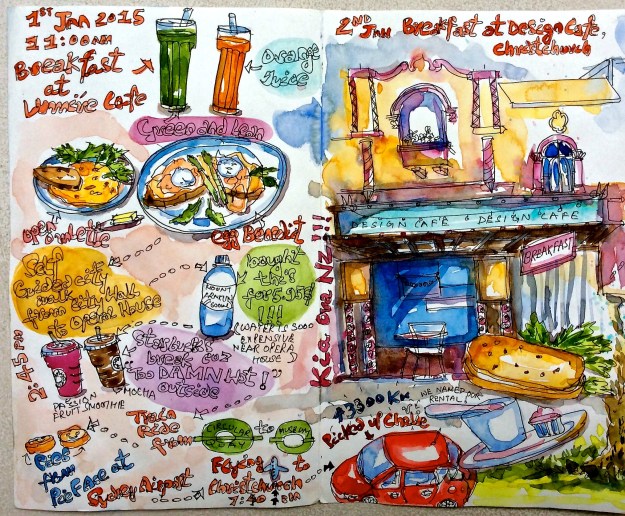 1ST JAN 2015
11:00AM
Breakfast
at
Lumiére Cafe
Orange
Juice
Green and Lean
Open omelette
egg Benedict
Self
Guided city
walk
from city Hall
to Opera House
MOUNT
FRANKLIN
500ml
bought
this
for 5.95$
!!!
(WATER IS SOOO
EXPENSIVE
NEAR OPERA
HOUSE)
2:45PM
Starbucks
break coz
Too DAMN Hot!
outside
PASSION
FRUIT SMOOTHIE
MOCHA
Train
Ride
from
CIRCULAR
QUAY
to
MUSEUM
Pies
from
Pie Face at
Sydney Airport
Flying to
Christchurch
7:40 PM
2ND JAN Breakfast at Design Cafe,
Christchurch
DESIGN CAFE DESIGN CAFE
BREAKFAST
Kia ora NZ!!!
3300 KM
Picked up Charlie
WE NAMED OUR
RENTAL!